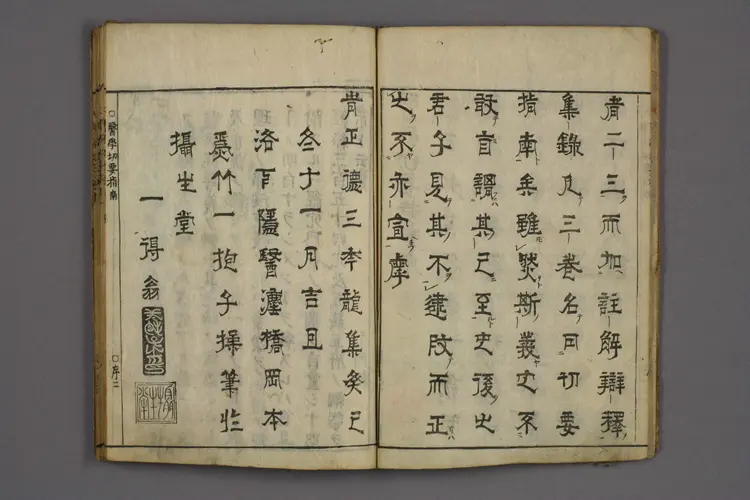 者二三而加註解辯釋
集錄凡三卷名曰切要
指南矣雖然斯義也不
敢自謂其已至也後之
君子見其不逮改而正
之不亦宜虖
旹正德三年龍集癸巳
冬十一月吉旦
洛下隱醫橋岡本
爲竹一抱子操筆於
攝生堂
一得翁
○醫學切要指南
○序二